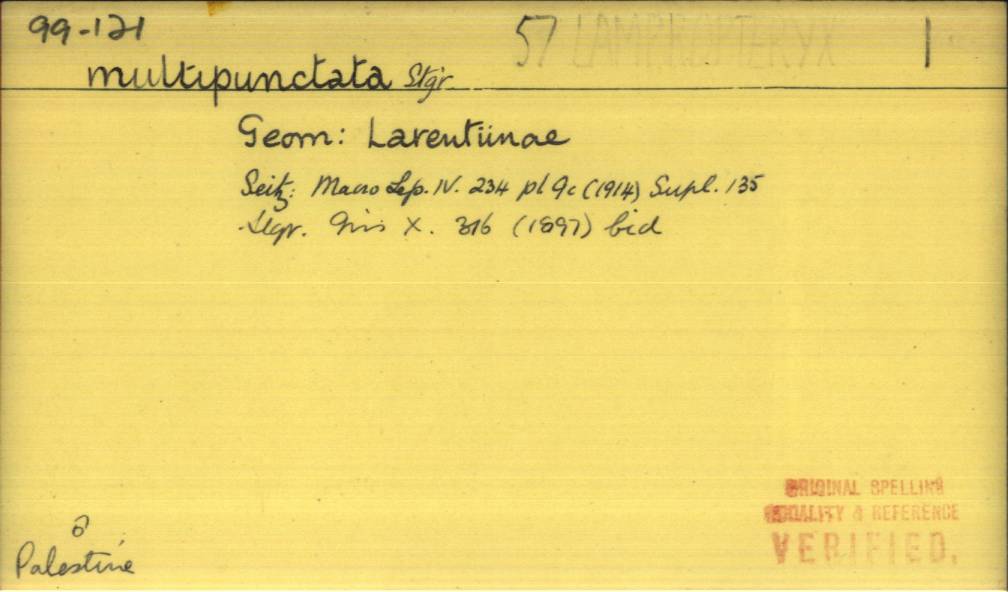 99-121 57 LAMPROPTERYX 1
multipunctata Stgr.
Geom: Larentiinae
Seitz: Macro Lep. IV. 234 pl 9c (1914) Supl. 135
Stgr. Iris X. 316 (1897) bid
♂
Palestine
ORIGINAL SPELLING
LOCALITY & REFERENCE
VERIFIED.